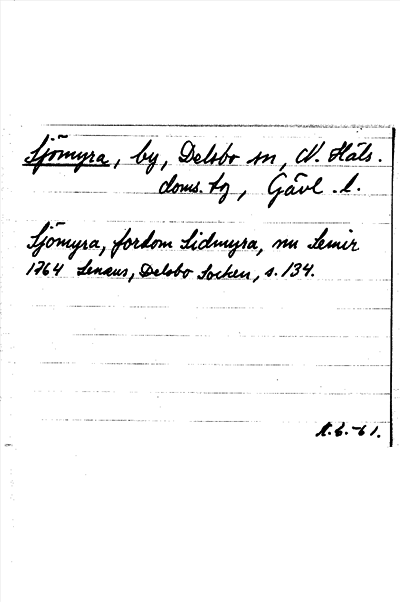 Sjömyra, by, Delsbo sn, N. Häls.
doms. tg, Gävl. l.
Sjömyra, fordom Sidmyra, nu Semir
1764 Lenæus, Delsbo Socken, s. 134.